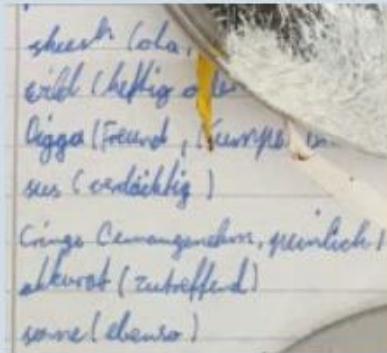 sheesh (oha,
wild (heftig o
Digga (Freund, Kumpel
sus (verdächtig)
Cringe (unangenehm, peinlich)
akkurat (zutreffend)
same (ebenso)